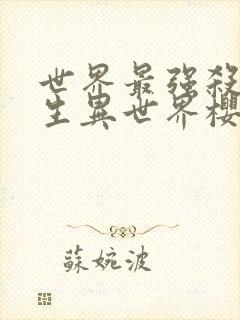 世界最強殺
生異世界櫻
蘇婉波